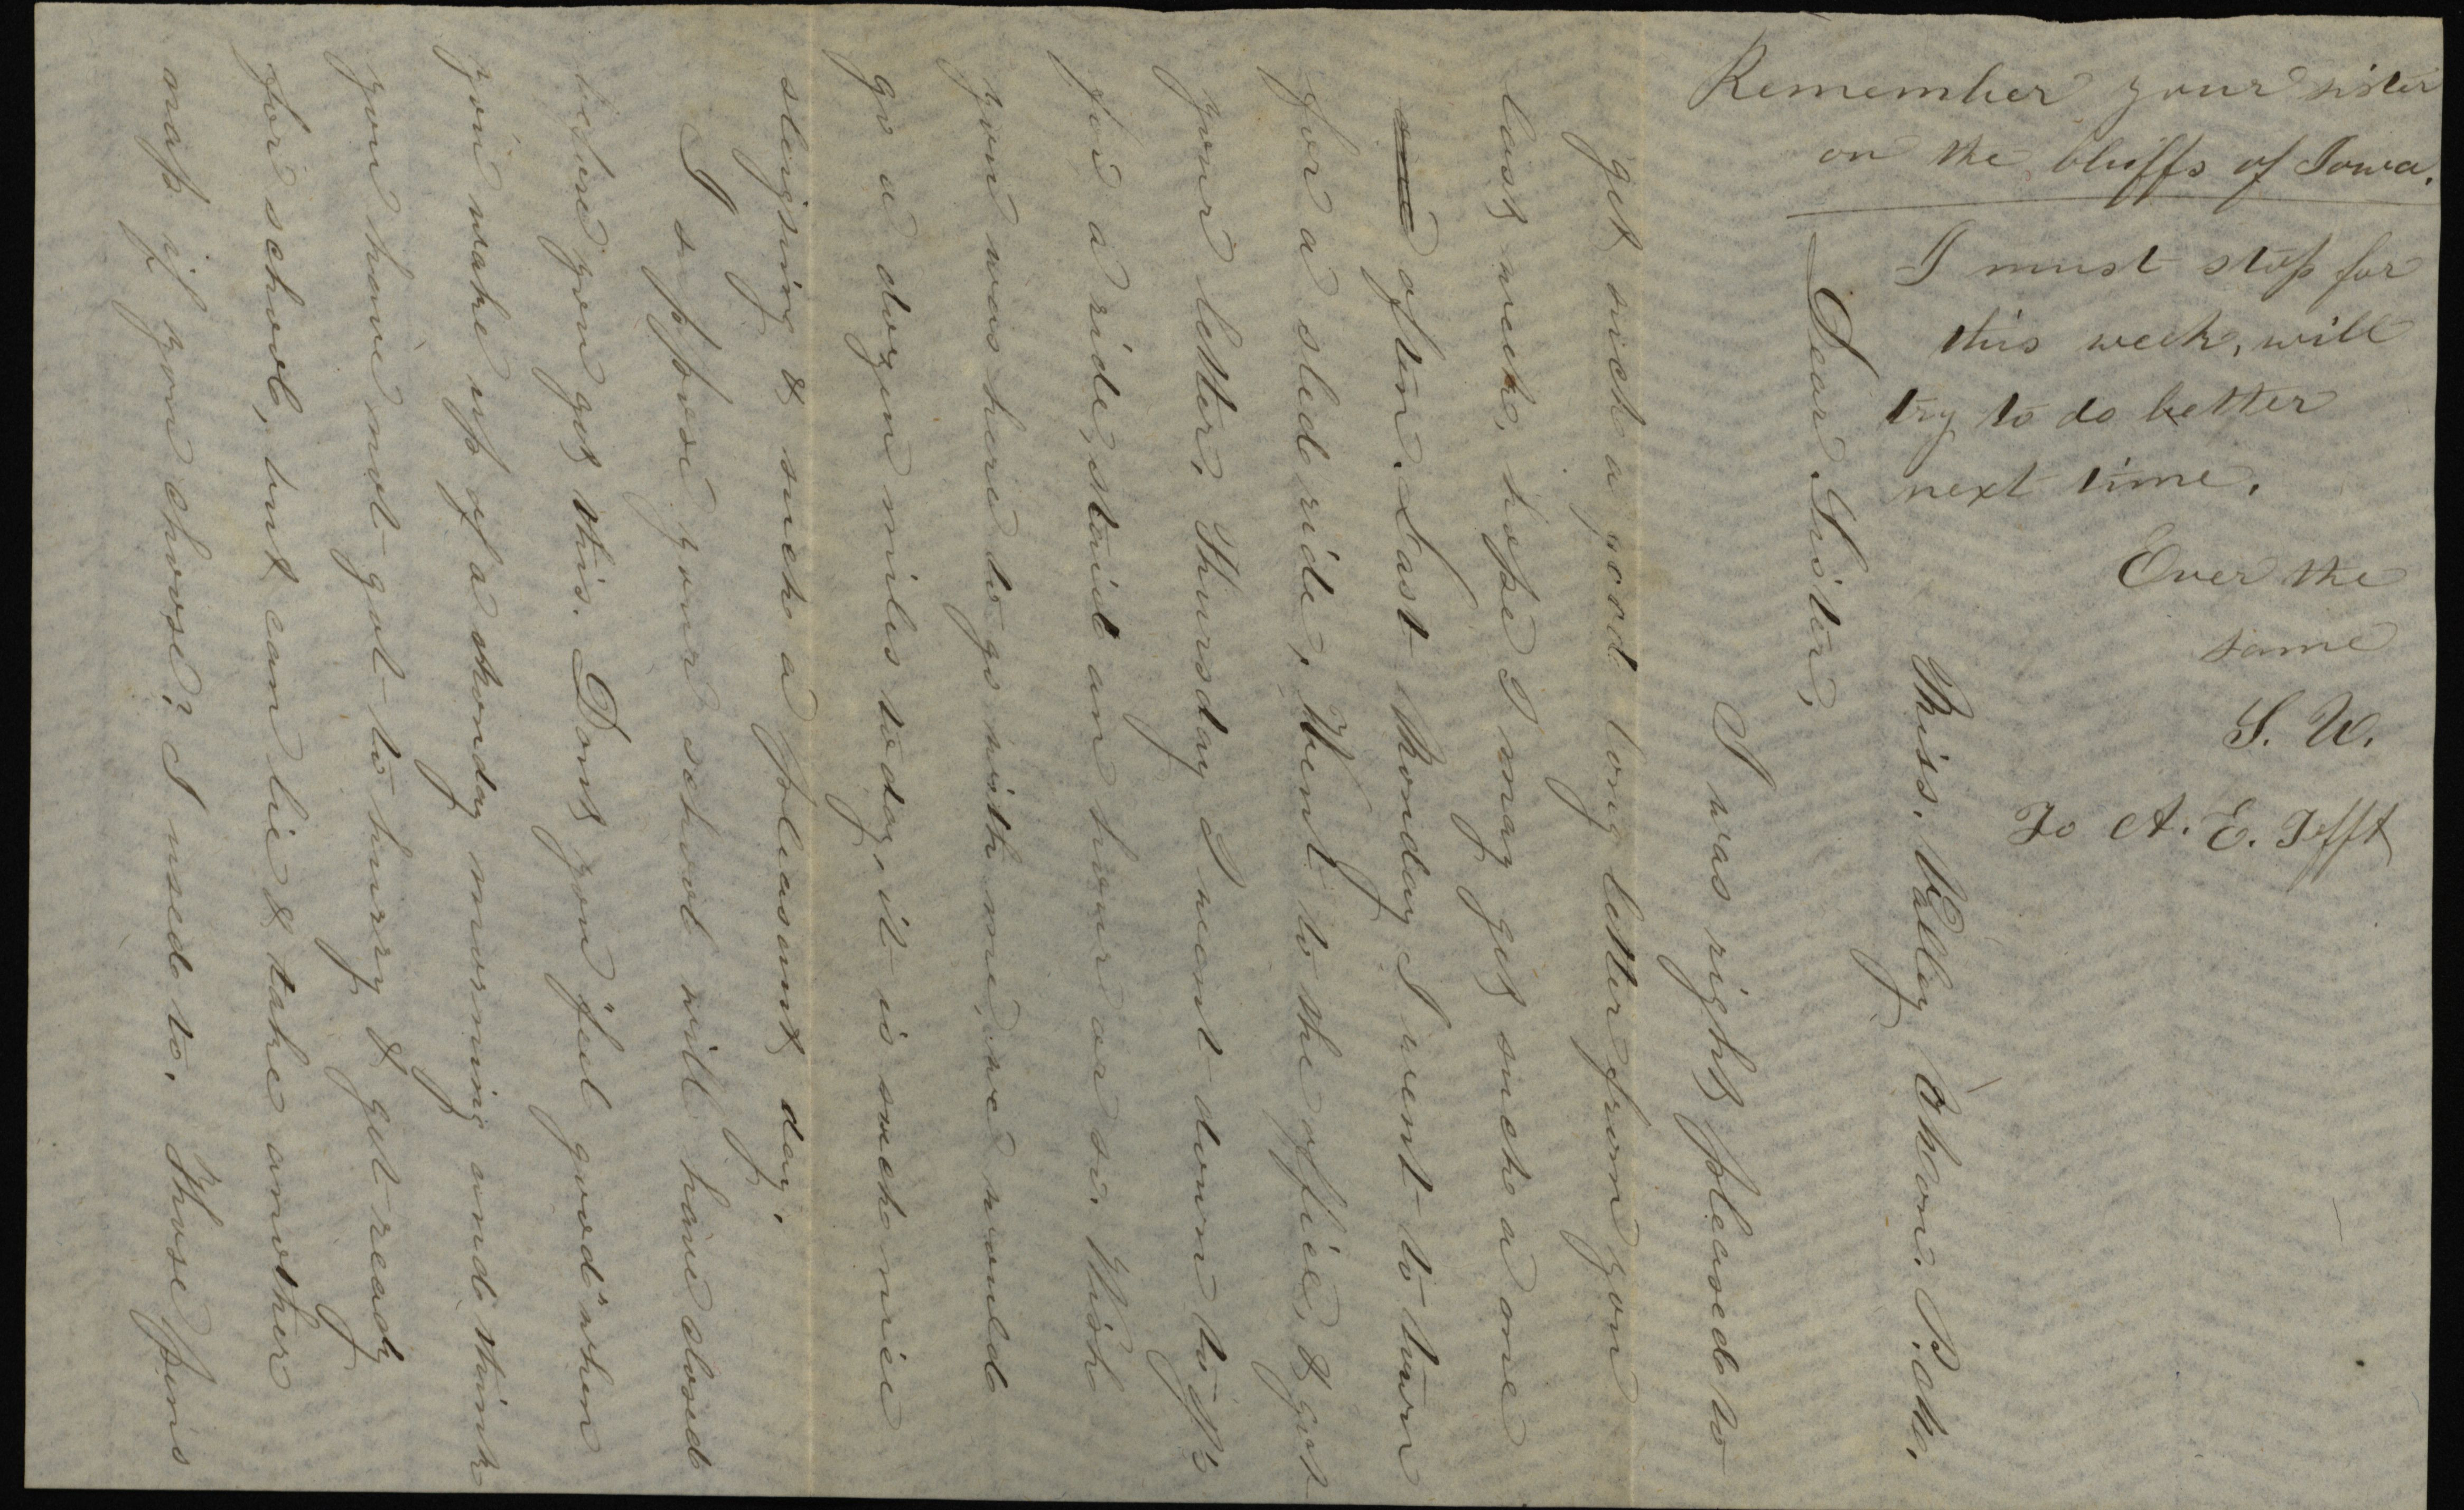 Remember your sister
on the bluffs of Iowa.
I must stop for
this week, will
try to do better
next time.
Ever the
same
S. W.
To A. E. Tefft
Miss. Valley Mon. P.M.
Dear Sister,
I was right pleased to
get sich a good long letter from you
last week, hope I may get such a one
often. Last Monday I went to town
for a sled ride, Went to the office, & got
your letter. Thursday I went down to J's
for a ride, staid an hour or so. Wish
you was here to go with me, we would
go a dozen miles today, it is such nice
sleighing & such a pleasant day.
I suppose your school will have closed
before you get this. Dont you feel "good" when
you wake up of a Monday morning and think
you have not got to hurry & get ready
for school, but can lie & take another
nap if you choose? I used to. Those pens